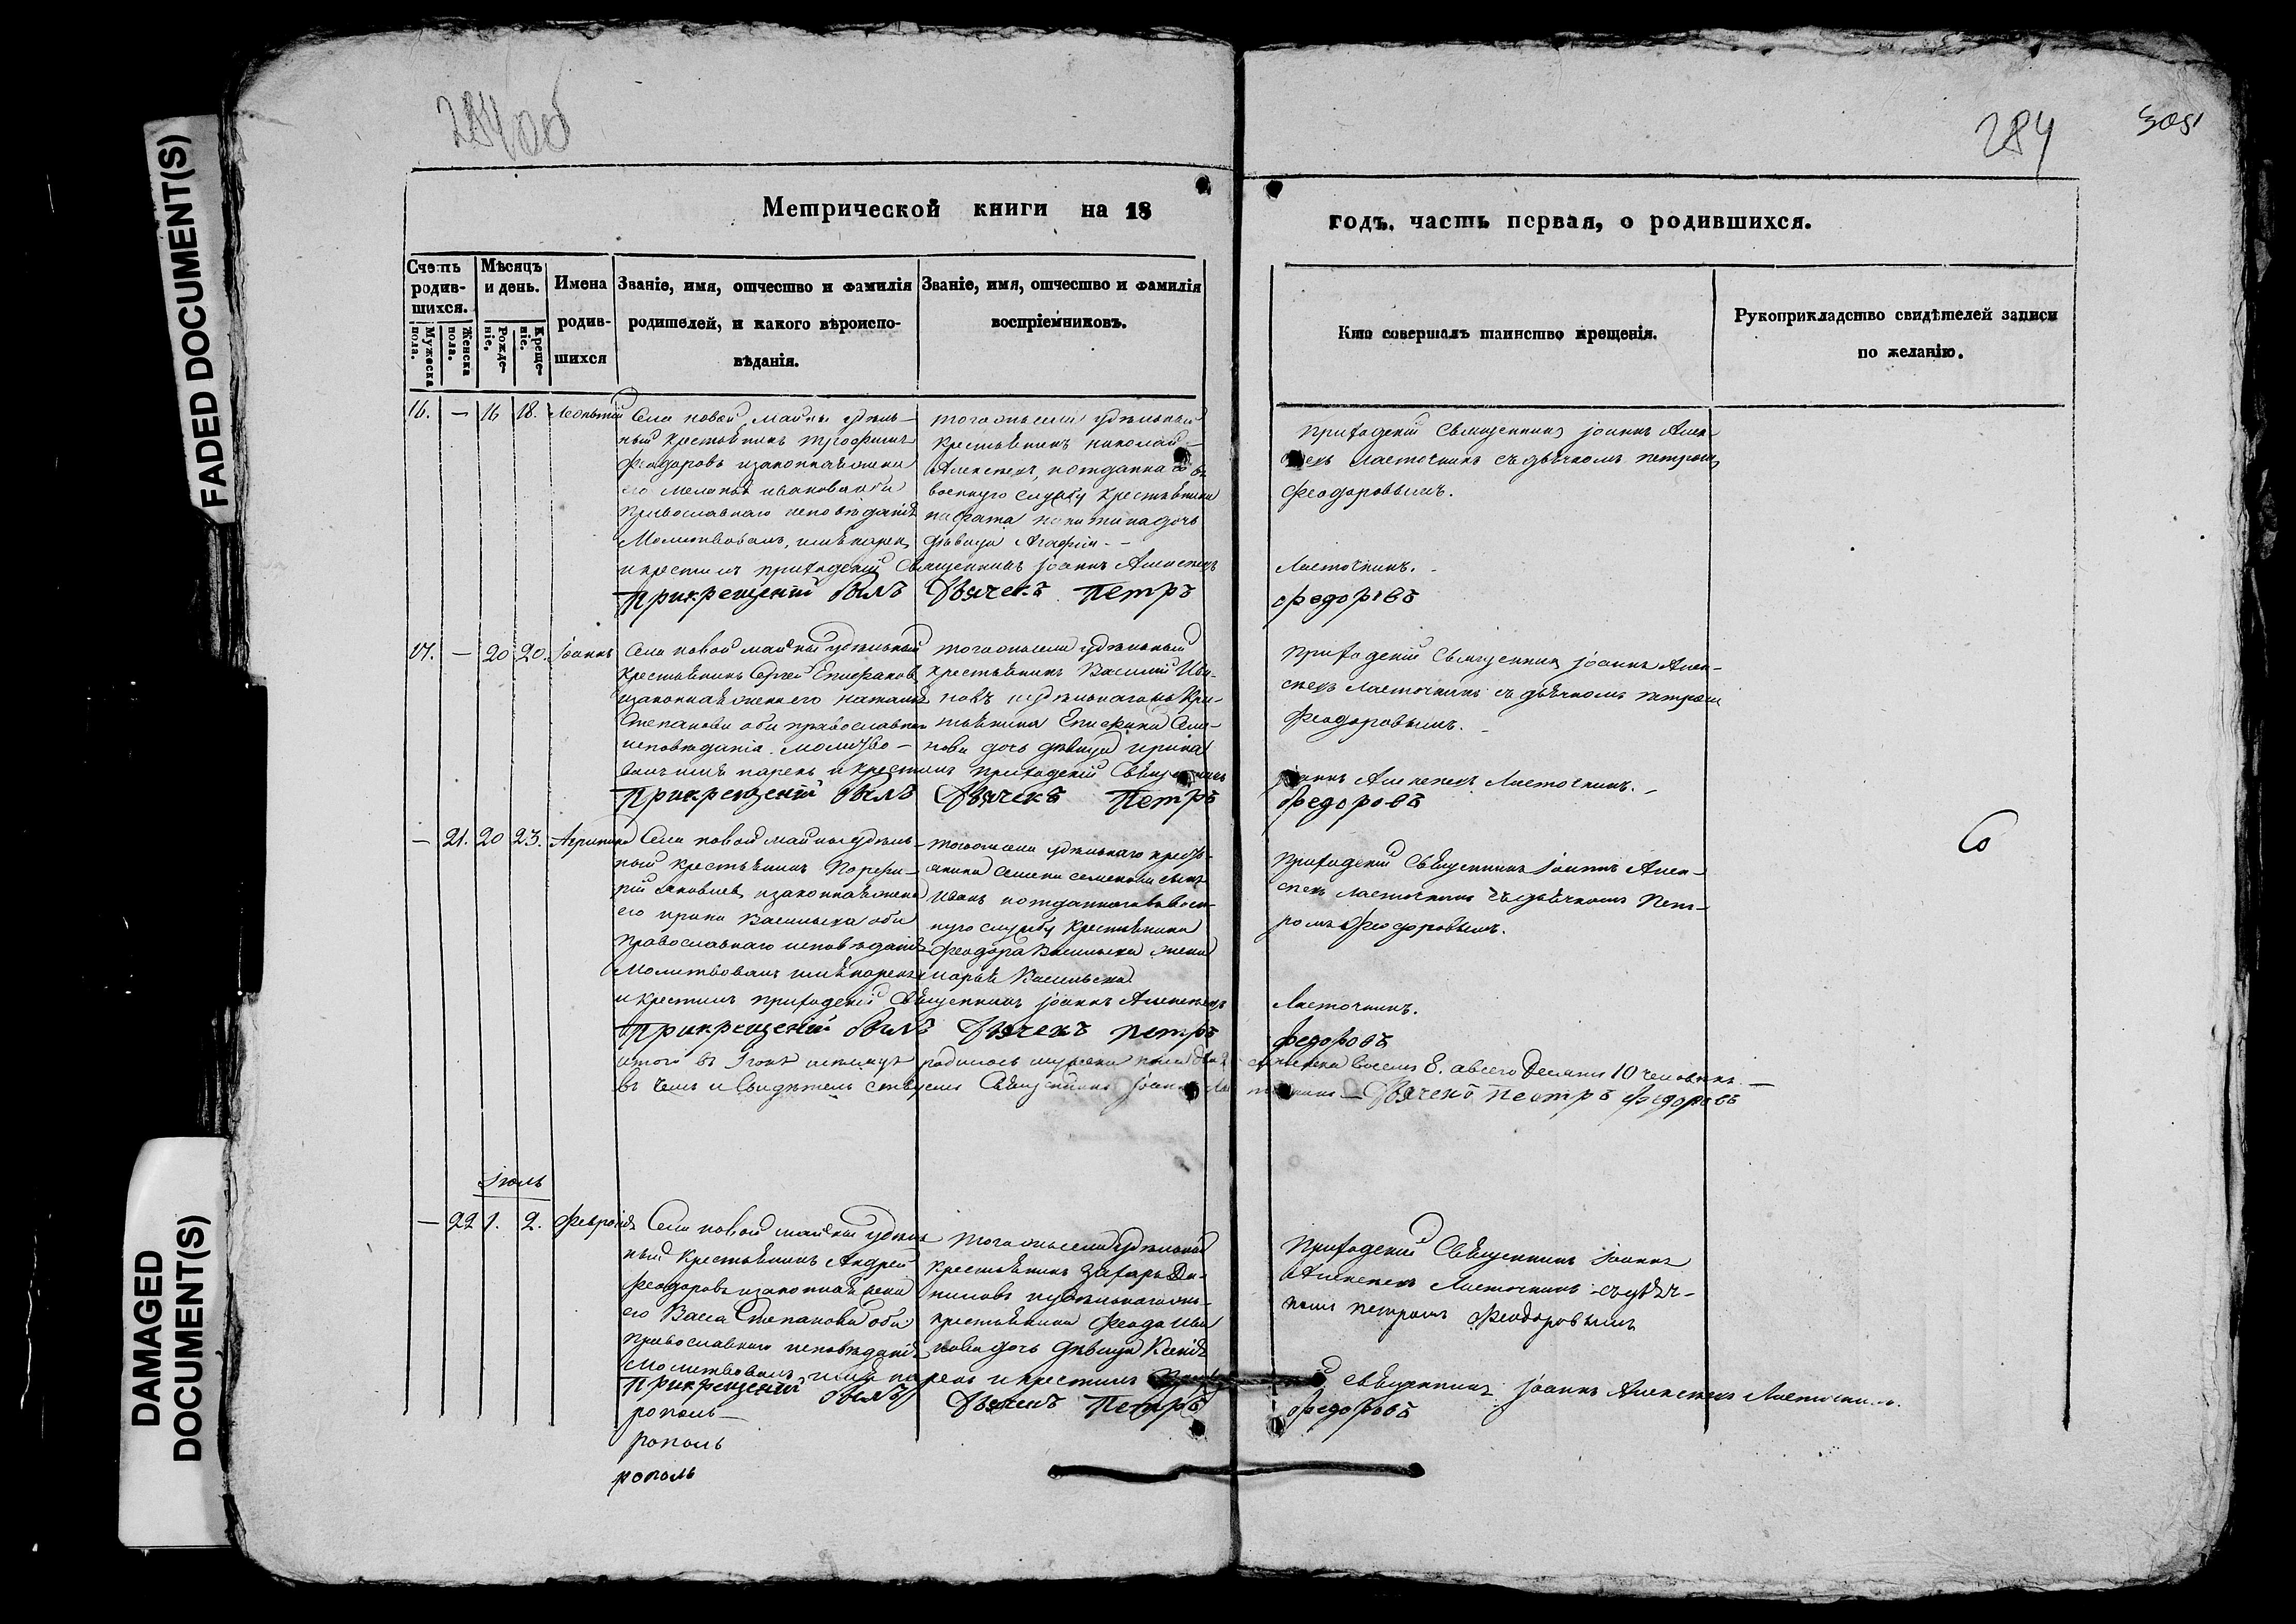 FADED DOCUMENT(S)
DAMAGED
DOCUMENT(S)
284об
284
305
Метрической книги на 18
годъ. часть первая, о родившихся.
Счетъ родив-шихся.
Мужеска пола.
Женска пола.
Мѣсяцъ и день.
Рожде-ніе.
Креще-ніе.
Имена родив-шихся
Званіе, имя, отчество и фамилія родителей, и какого вѣроиспо-вѣданія.
Званіе, имя, отчество и фамилія воспріемниковъ.
Кто совершалъ таинство крещенія.
Рукоприкладство свидѣтелей записи по желанію.
16. — 16 18. Леонтий
Села новой майны удѣль-
ный крестьянинъ трофимъ
Феодоровъ изаконная жена
его Иванова оба
православнаго исповѣданія
Молитвовалъ, имя нарек
и крестилъ приходский Священникъ Іоаннъ Алексеевъ
Прикрещеніи былъ Дьячекъ Петръ
тогоже села удѣльный
крестьянинъ николай
Алексеевъ, и отданнаго въ
военную службу крестьянина
никитина дочь
дѣвица Агафия
приходский Священникъ Іоаннъ Алек
сеевъ Ласточкинъ съ дьячкомъ петромъ
Феодоровымъ.
Ласточкинъ.
Федоровъ
17. — 20 20. Іоаннъ
Села новой майны удѣльный
крестьянинъ Сергей Епифановъ
изаконная жена его наталия
Степанова оба православнаго
исповѣданія молитво-
валъ имя нарекъ и крестилъ приходский Священникъ
Прикрещеніи былъ Дьячекъ Петръ
тогоже села удѣльный
крестьянинъ Василий Ива-
новъ и удѣльнагожъ кре-
стьянина Епифана Семе-
нова дочь дѣвица ирина
приходский Священникъ Іоаннъ Алек-
сеевъ Ласточкинъ съ дьячкомъ петромъ
Феодоровымъ.
Іоаннъ Алексеевъ Ласточкинъ.
Федоровъ
— 21. 20 23. Агрипина
Села новой майны удѣль-
ный крестьянинъ Порфи-
рий Яковлевъ изаконная жена
его ирина Васильева оба
Православнаго исповѣдания
Молитвовалъ имя нарекъ
и крестилъ приходский Священникъ Іоаннъ Алексеевъ
Прикрещеніи былъ Дьячекъ Петръ
тогоже села удѣльнаго кресть-
янина Семена Семенова сынъ
Иванъ и отданнаго въ воен-
ную службу крестьянина
Феодора Васильева жена
Марья Васильева
приходский Священникъ Іоаннъ Алек-
сеевъ Ласточкинъ съ дьячкомъ Пет-
ромъ Феодоровымъ.
Ласточкинъ.
Федоровъ
Итого въ Іюнѣ месяцѣ родилось мужеска пола два 2 женска восемь 8. а всего десять 10 человекъ. —
въ чемъ и Свидѣтельствуемъ Священникъ Іоаннъ Ласточкинъ — Дьячекъ Петръ Федоровъ
Іюль
— 22 1. 2. Феврония
Села новой майны удѣль
ный Крестьянинъ Андрей
Феодоровъ изаконная жена
его Васса Степанова оба
православнаго исповѣдания
Молитвовалъ имя нарекъ и крестилъ
Прикрещеніи былъ Дьячекъ Петръ
тогоже села удѣльный
крестьянинъ Захаръ Да-
ниловъ и удѣльнагожъ
крестьянина Феодора Ива
нова дочь дѣвица Ксения
Приходский Священникъ Іоаннъ
Алексеевъ Ласточкинъ съ дьяч-
комъ петромъ Феодоровымъ
Священникъ Іоаннъ Алексеевъ Ласточкинъ.
Федоровъ
рополь
рополь
рополь